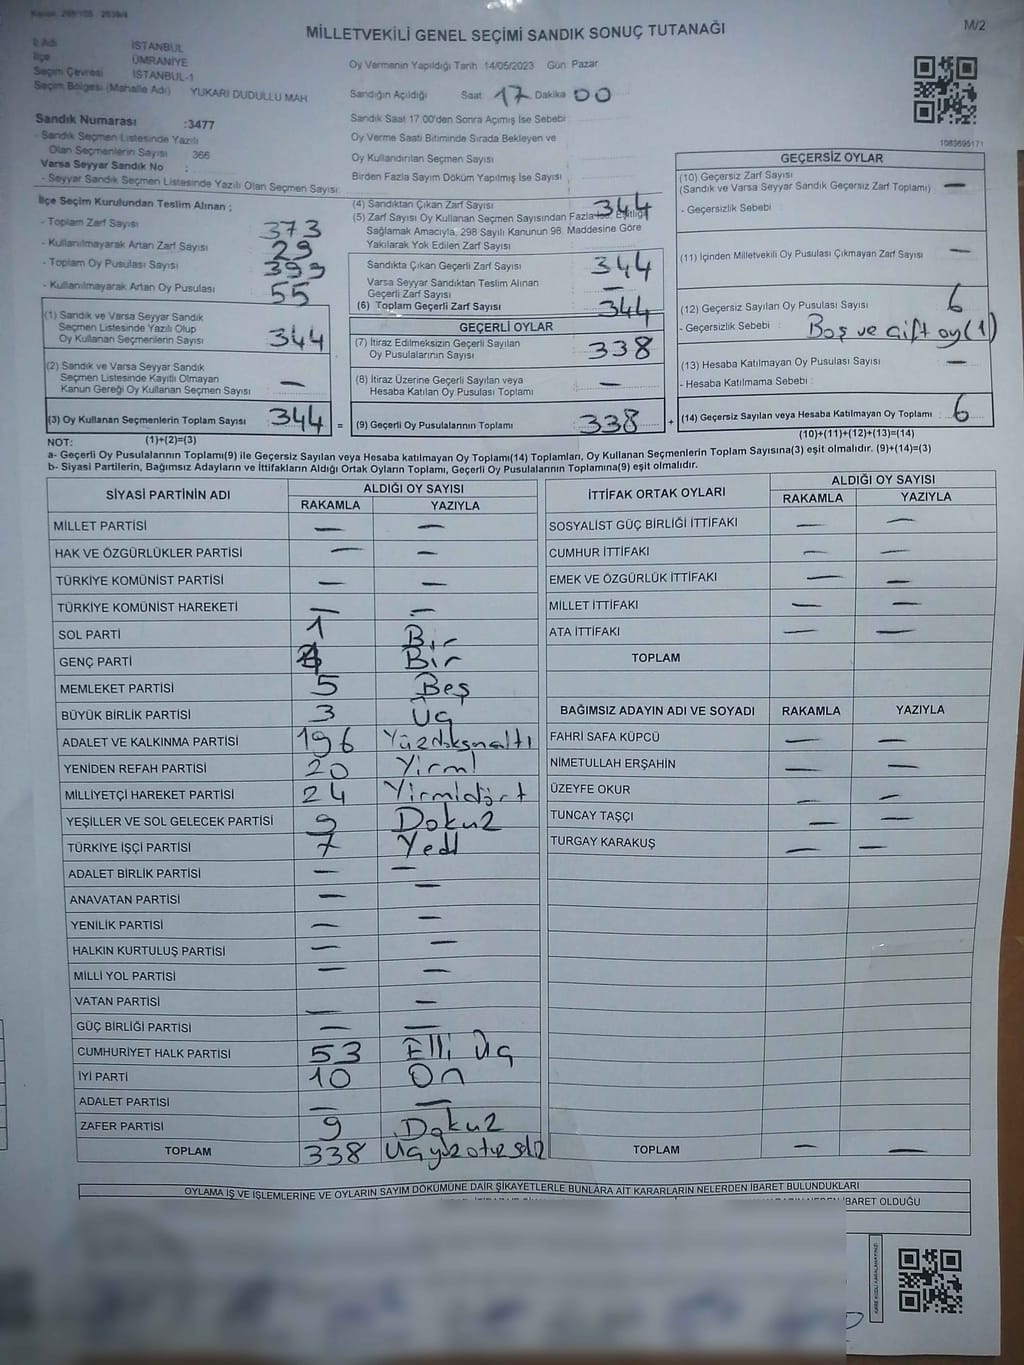 M/2
MİLLETVEKİLİ GENEL SEÇİMİ SANDIK SONUÇ TUTANAĞI
İl Adı İSTANBUL
İlçe ÜMRANİYE
Seçim Çevresi İSTANBUL-1
Seçim Bölgesi (Mahalle Adı) YUKARI DUDULLU MAH
Oy Vermenin Yapıldığı Tarih 14/05/2023 Gün Pazar
Sandığın Açıldığı Saat 17 Dakika 00
Sandık Numarası :3477
- Sandık Seçmen Listesinde Yazılı
Olan Seçmenlerin Sayısı : 366
Varsa Seyyar Sandık No :
- Seyyar Sandık Seçmen Listesinde Yazılı Olan Seçmen Sayısı:
Sandık Saat 17 00'den Sonra Açımış İse Sebebi :
Oy Verme Saati Bitiminde Sırada Bekleyen ve
Oy Kullandırılan Seçmen Sayısı
Birden Fazla Sayım Döküm Yapılmış İse Sayısı :
1083695171
İlçe Seçim Kurulundan Teslim Alınan ;
- Toplam Zarf Sayısı : 373
- Kullanılmayarak Artan Zarf Sayısı : 29
- Toplam Oy Pusulası Sayısı : 399
- Kullanılmayarak Artan Oy Pusulası : 55
(1) Sandık ve Varsa Seyyar Sandık
Seçmen Listesinde Yazılı Olup
Oy Kullanan Seçmenlerin Sayısı : 344
(2) Sandık ve Varsa Seyyar Sandık
Seçmen Listesinde Kayıtlı Olmayan
Kanun Gereği Oy Kullanan Seçmen Sayısı : —
(3) Oy Kullanan Seçmenlerin Toplam Sayısı : 344 =
(4) Sandıktan Çıkan Zarf Sayısı : 344
(5) Zarf Sayısı Oy Kullanan Seçmen Sayısından Fazla İse, Eşitliği
Sağlamak Amacıyla, 298 Sayılı Kanunun 98. Maddesine Göre
Yakılarak Yok Edilen Zarf Sayısı :
Sandıkta Çıkan Geçerli Zarf Sayısı : 344
Varsa Seyyar Sandıktan Teslim Alınan
Geçerli Zarf Sayısı : —
(6) Toplam Geçerli Zarf Sayısı : 344
GEÇERLİ OYLAR
(7) İtiraz Edilmeksizin Geçerli Sayılan
Oy Pusulalarının Sayısı : 338
(8) İtiraz Üzerine Geçerli Sayılan veya
Hesaba Katılan Oy Pusulası Toplamı : —
(9) Geçerli Oy Pusulalarının Toplamı : 338 +
GEÇERSİZ OYLAR
(10) Geçersiz Zarf Sayısı
(Sandık ve Varsa Seyyar Sandık Geçersiz Zarf Toplamı) : —
- Geçersizlik Sebebi :
(11) İçinden Milletvekili Oy Pusulası Çıkmayan Zarf Sayısı : —
(12) Geçersiz Sayılan Oy Pusulası Sayısı : 6
- Geçersizlik Sebebi : Boş ve çift oy (1)
(13) Hesaba Katılmayan Oy Pusulası Sayısı : —
- Hesaba Katılmama Sebebi :
(14) Geçersiz Sayılan veya Hesaba Katılmayan Oy Toplamı : 6
NOT: (1)+(2)=(3)
(10)+(11)+(12)+(13)=(14)
a- Geçerli Oy Pusulalarının Toplamı(9) ile Geçersiz Sayılan veya Hesaba Katılmayan Oy Toplamı(14) Toplamları, Oy Kullanan Seçmenlerin Toplam Sayısına(3) eşit olmalıdır. (9)+(14)=(3)
b- Siyasi Partilerin, Bağımsız Adayların ve İttifakların Aldığı Ortak Oyların Toplamı, Geçerli Oy Pusulalarının Toplamına(9) eşit olmalıdır.
SİYASİ PARTİNİN ADI ALDIĞI OY SAYISI
RAKAMLA YAZIYLA
MİLLET PARTİSİ — —
HAK VE ÖZGÜRLÜKLER PARTİSİ — —
TÜRKİYE KOMÜNİST PARTİSİ — —
TÜRKİYE KOMÜNİST HAREKETİ — —
SOL PARTİ 1 Bir
GENÇ PARTİ Bir
MEMLEKET PARTİSİ 5 Beş
BÜYÜK BİRLİK PARTİSİ 3 Üç
ADALET VE KALKINMA PARTİSİ 196 Yüzdoksanaltı
YENİDEN REFAH PARTİSİ 20 Yirmi
MİLLİYETÇİ HAREKET PARTİSİ 24 Yirmidört
YEŞİLLER VE SOL GELECEK PARTİSİ 9 Dokuz
TÜRKİYE İŞÇİ PARTİSİ 7 Yedi
ADALET BİRLİK PARTİSİ — —
ANAVATAN PARTİSİ — —
YENİLİK PARTİSİ — —
HALKIN KURTULUŞ PARTİSİ — —
MİLLİ YOL PARTİSİ — —
VATAN PARTİSİ — —
GÜÇ BİRLİĞİ PARTİSİ — —
CUMHURİYET HALK PARTİSİ 53 Elli Üç
İYİ PARTİ 10 On
ADALET PARTİSİ — —
ZAFER PARTİSİ 9 Dokuz
TOPLAM 338
İTTİFAK ORTAK OYLARI ALDIĞI OY SAYISI
RAKAMLA YAZIYLA
SOSYALİST GÜÇ BİRLİĞİ İTTİFAKI — —
CUMHUR İTTİFAKI — —
EMEK VE ÖZGÜRLÜK İTTİFAKI — —
MİLLET İTTİFAKI — —
ATA İTTİFAKI — —
TOPLAM
BAĞIMSIZ ADAYIN ADI VE SOYADI RAKAMLA YAZIYLA
FAHRİ SAFA KÜPCÜ — —
NİMETULLAH ERŞAHİN — —
ÜZEYFE OKUR — —
TUNCAY TAŞÇI — —
TURGAY KARAKUŞ — —
TOPLAM — —
OYLAMA İŞ VE İŞLEMLERİNE VE OYLARIN SAYIM DÖKÜMÜNE DAİR ŞİKAYETLERLE BUNLARA AİT KARARLARIN NELERDEN İBARET BULUNDUKLARI
İBARET OLDUĞU